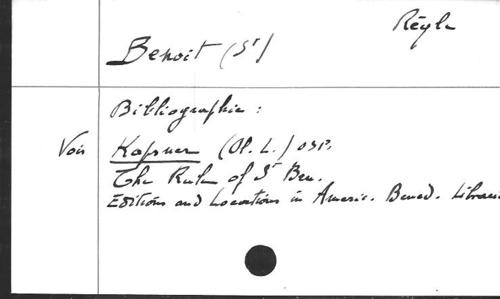 Règle
Benoit (St)
Bibliographie :
Voir Kapsner (Ol. L.) OSB.
The Rule of St Ben.
Editions and Locations in Americ. Bened. Librari